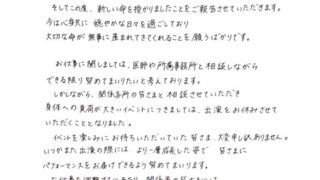 そしてこの度、新しい命を授かりましたことをご報告させていただきます。
今は心身共に穏やかな日々を過ごしており
大切な命が無事に産まれてきてくれることを願うばかりです。
お仕事に関しましては、医師や所属事務所と相談しながら
できる限り努めてまいりたいと考えております。
しかしながら、関係各所の皆さまと相談させていただき
身体への負荷が大きいイベントにつきましては、出演をお休みさせて
いただくこととなりました。
イベントを楽しみにお待ちいただいていた皆さま、大変申し訳ありません。
いつかまた出演の際には、より一層成長した姿で 皆さまに
パフォーマンスをお届けできるよう努めてまいります。